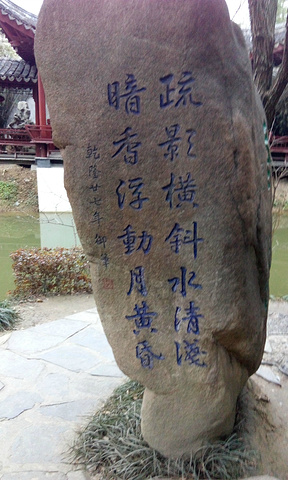 疏影橫斜水清淺
暗香浮動月黃昏
乾隆廿七年御筆